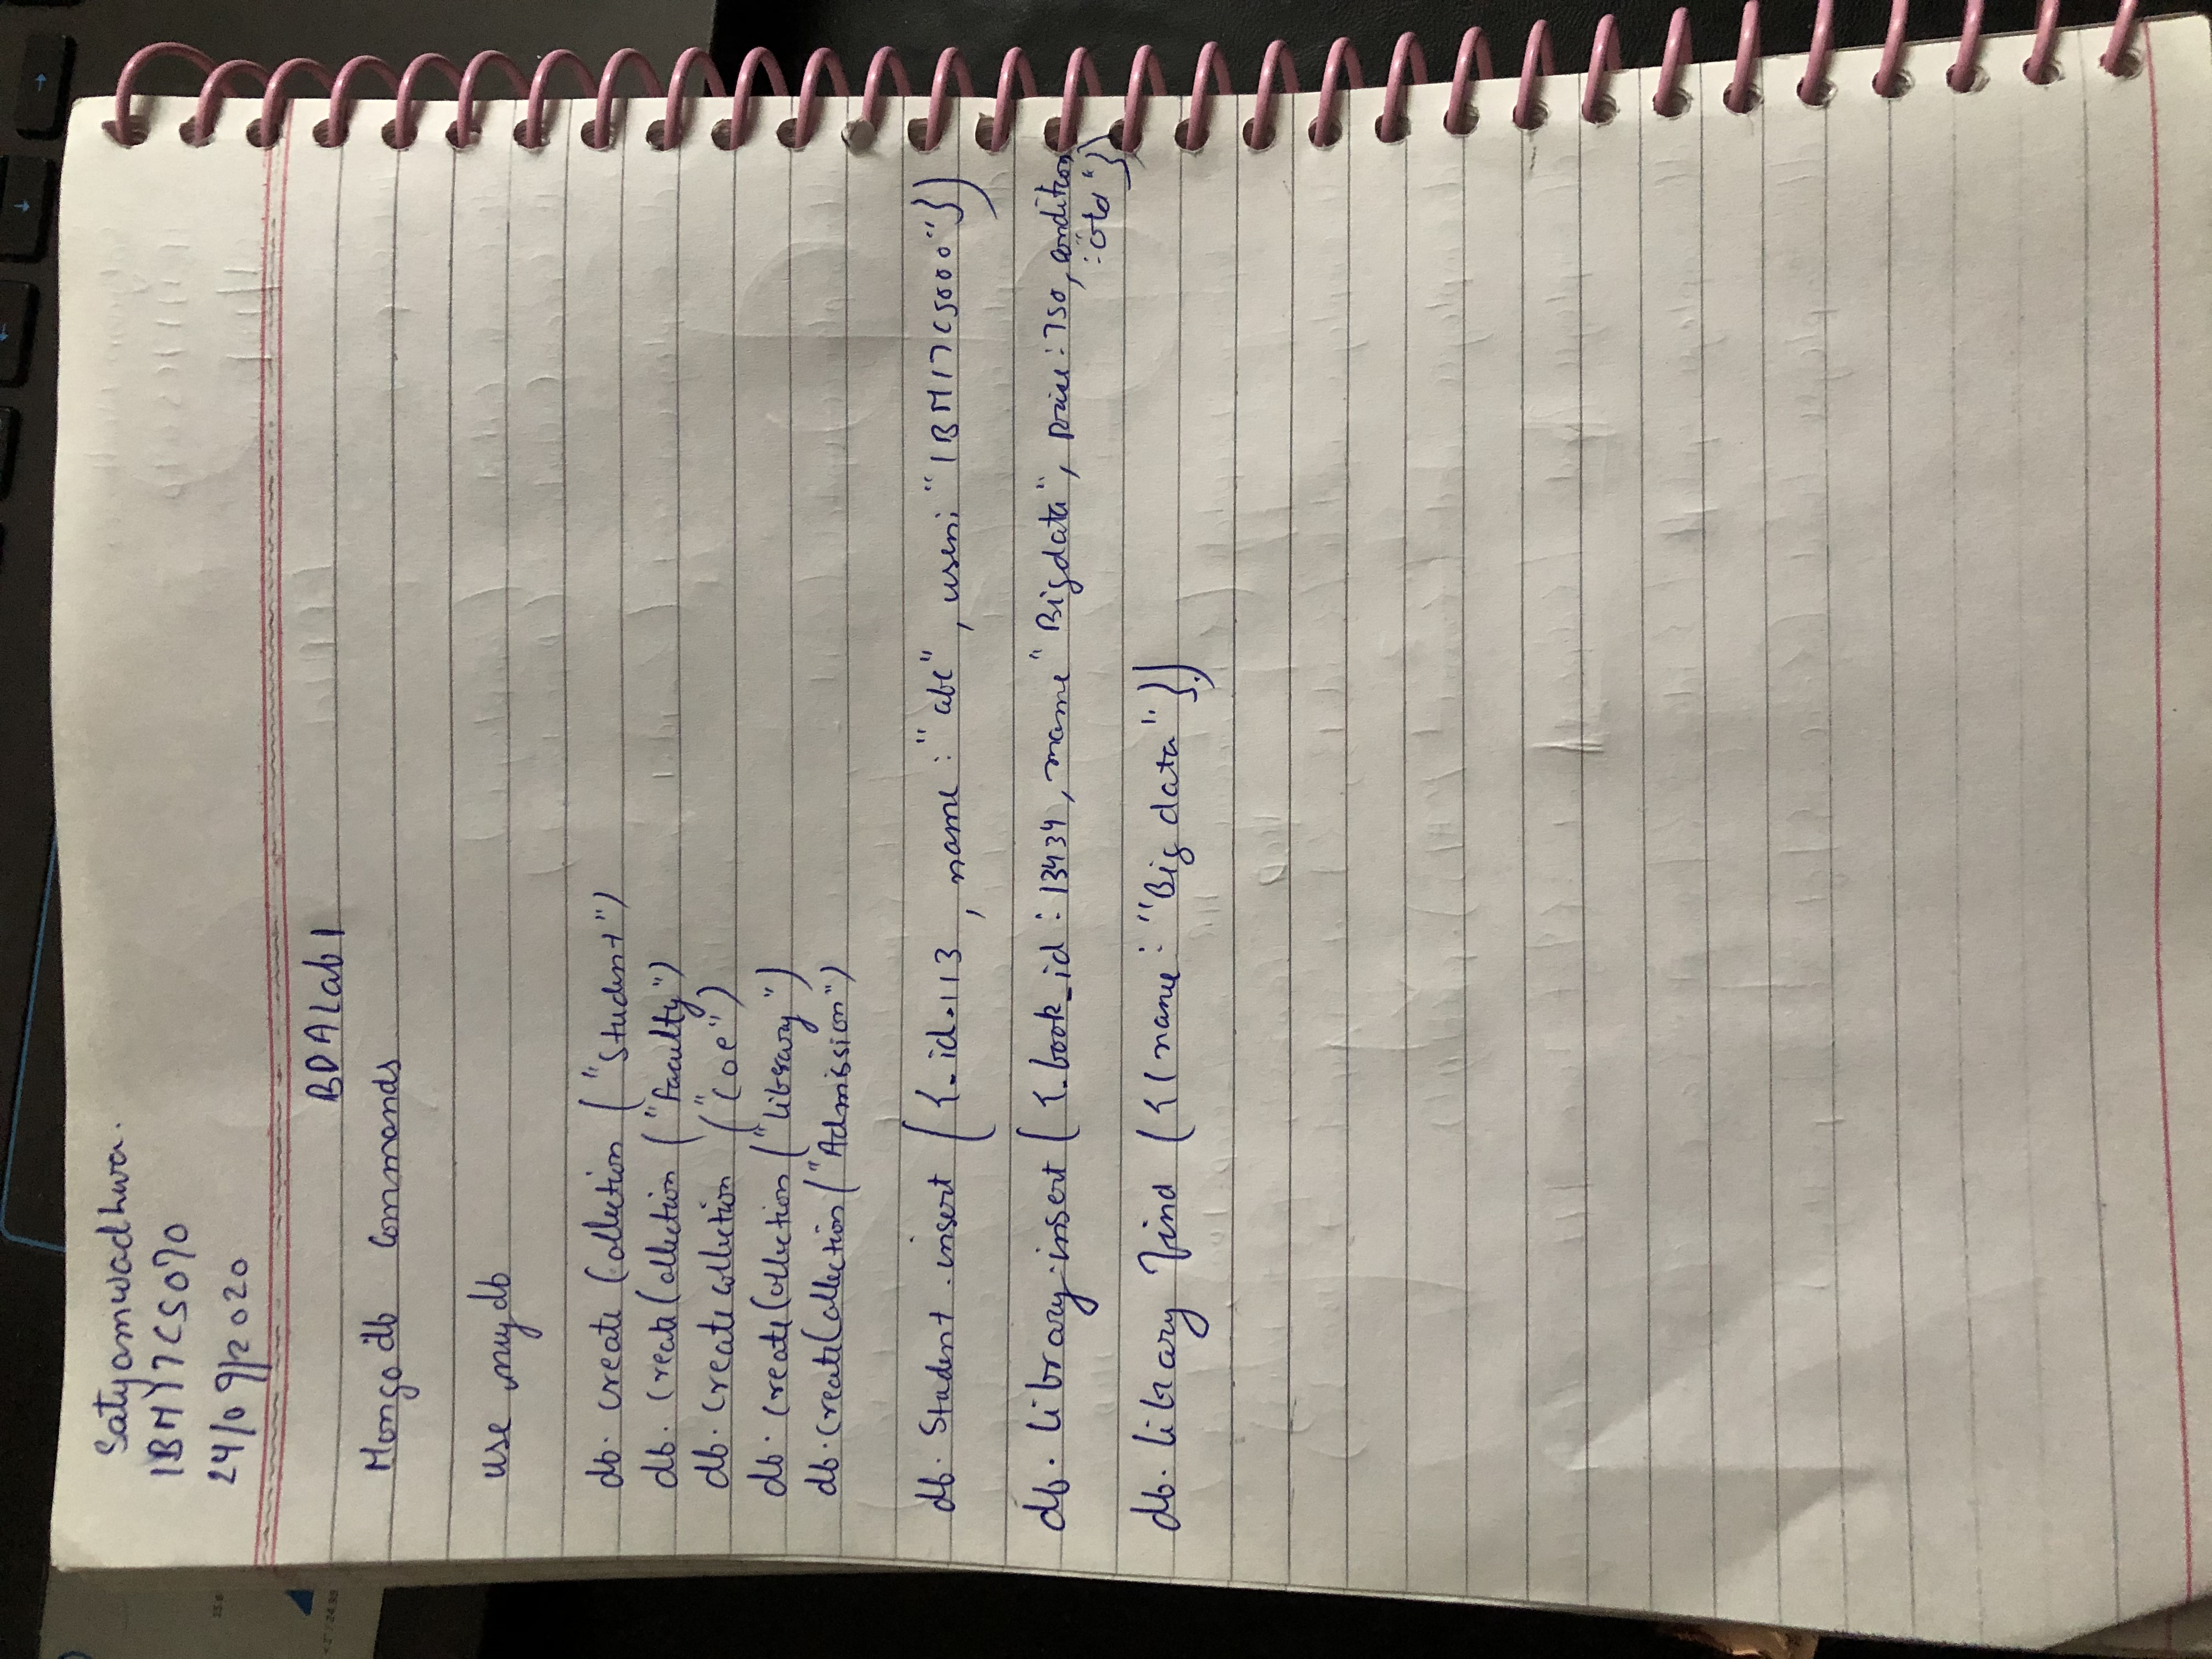 Satyamwadhwa.
1BM17CS070
24/09/2020
BDA Lab 1
Mongo db Commands
use mydb
db. create Collection ("Student")
db. CreateCollection ("Faculty")
db. Createcollection ("Coe")
db. CreateCollection ("library")
db. CreateCollection ("Admission")
db. Student . insert ({_id.113, name : "abc", usen: "1BM17CS000"})
db. library.insert ({_book_id : 13434, name "Bigdata", price : 750, condition
: "old"})
db. library find ({(name : "Big data"})